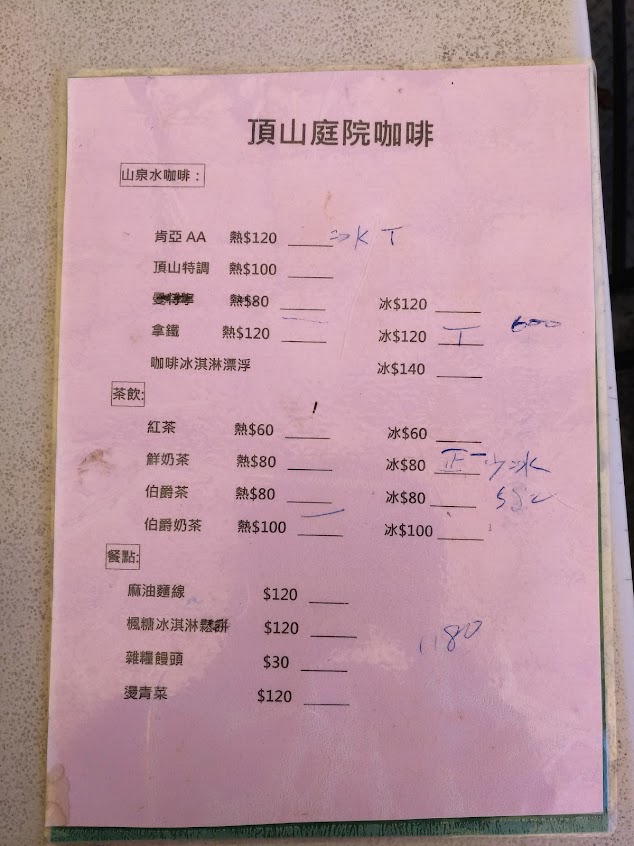 頂山庭院咖啡
山泉水咖啡：
肯亞 AA 熱$120 ____ 冰K T
頂山特調 熱$100 ____
曼特寧 熱$80 ____ 冰$120 ____
拿鐵 熱$120 ____ 冰$120 ____ T 600
咖啡冰淇淋漂浮 冰$140 ____
茶飲:
紅茶 熱$60 ____ 冰$60 ____
鮮奶茶 熱$80 ____ 冰$80 ____ 正一 少冰
伯爵茶 熱$80 ____ 冰$80 ____
伯爵奶茶 熱$100 ____ 冰$100 ____
餐點:
麻油麵線 $120 ____
楓糖冰淇淋鬆餅 $120 ____
雜糧饅頭 $30 ____
燙青菜 $120 ____
1180